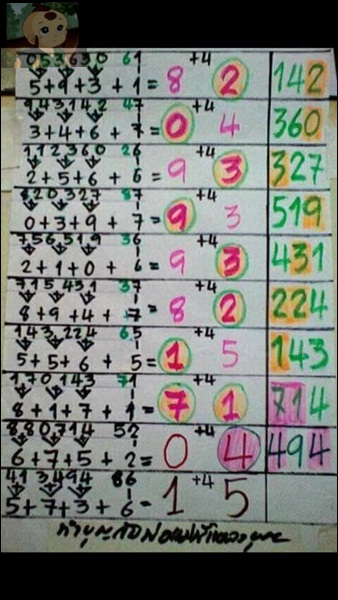 053630 61
5+9+3+1= 8 +4 2 142
943142 47
3+4+6+7= 0 +4 4 360
112360 26
2+5+6+6= 9 +4 3 327
820327 87
0+3+9+7= 9 +4 3 519
756519 36
2+1+0+6= 9 +4 3 431
715431 37
8+9+4+7= 8 +4 2 224
143224 65
5+5+6+5= 1 +4 5 143
170143 71
8+1+7+1= 7 +4 1 714
880714 52
6+7+5+2= 0 +4 4 494
413494 86
5+7+3+6= 1 +4 5